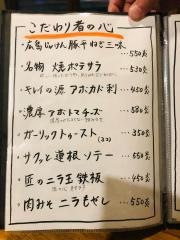 こだわり者の心
・広島じゃけん豚平ねぎ三昧 …550条
・名物 焼ポテサラ …530条
・キレイの源アボカド刺 …450条
・濃厚アボトマチーズ …580条
・ガーリックトースト(2コ) …350条
・サクッと蓮根ソテー …550条
・匠のニラ玉鉄板 …450条
・肉みそニラもやし …550条